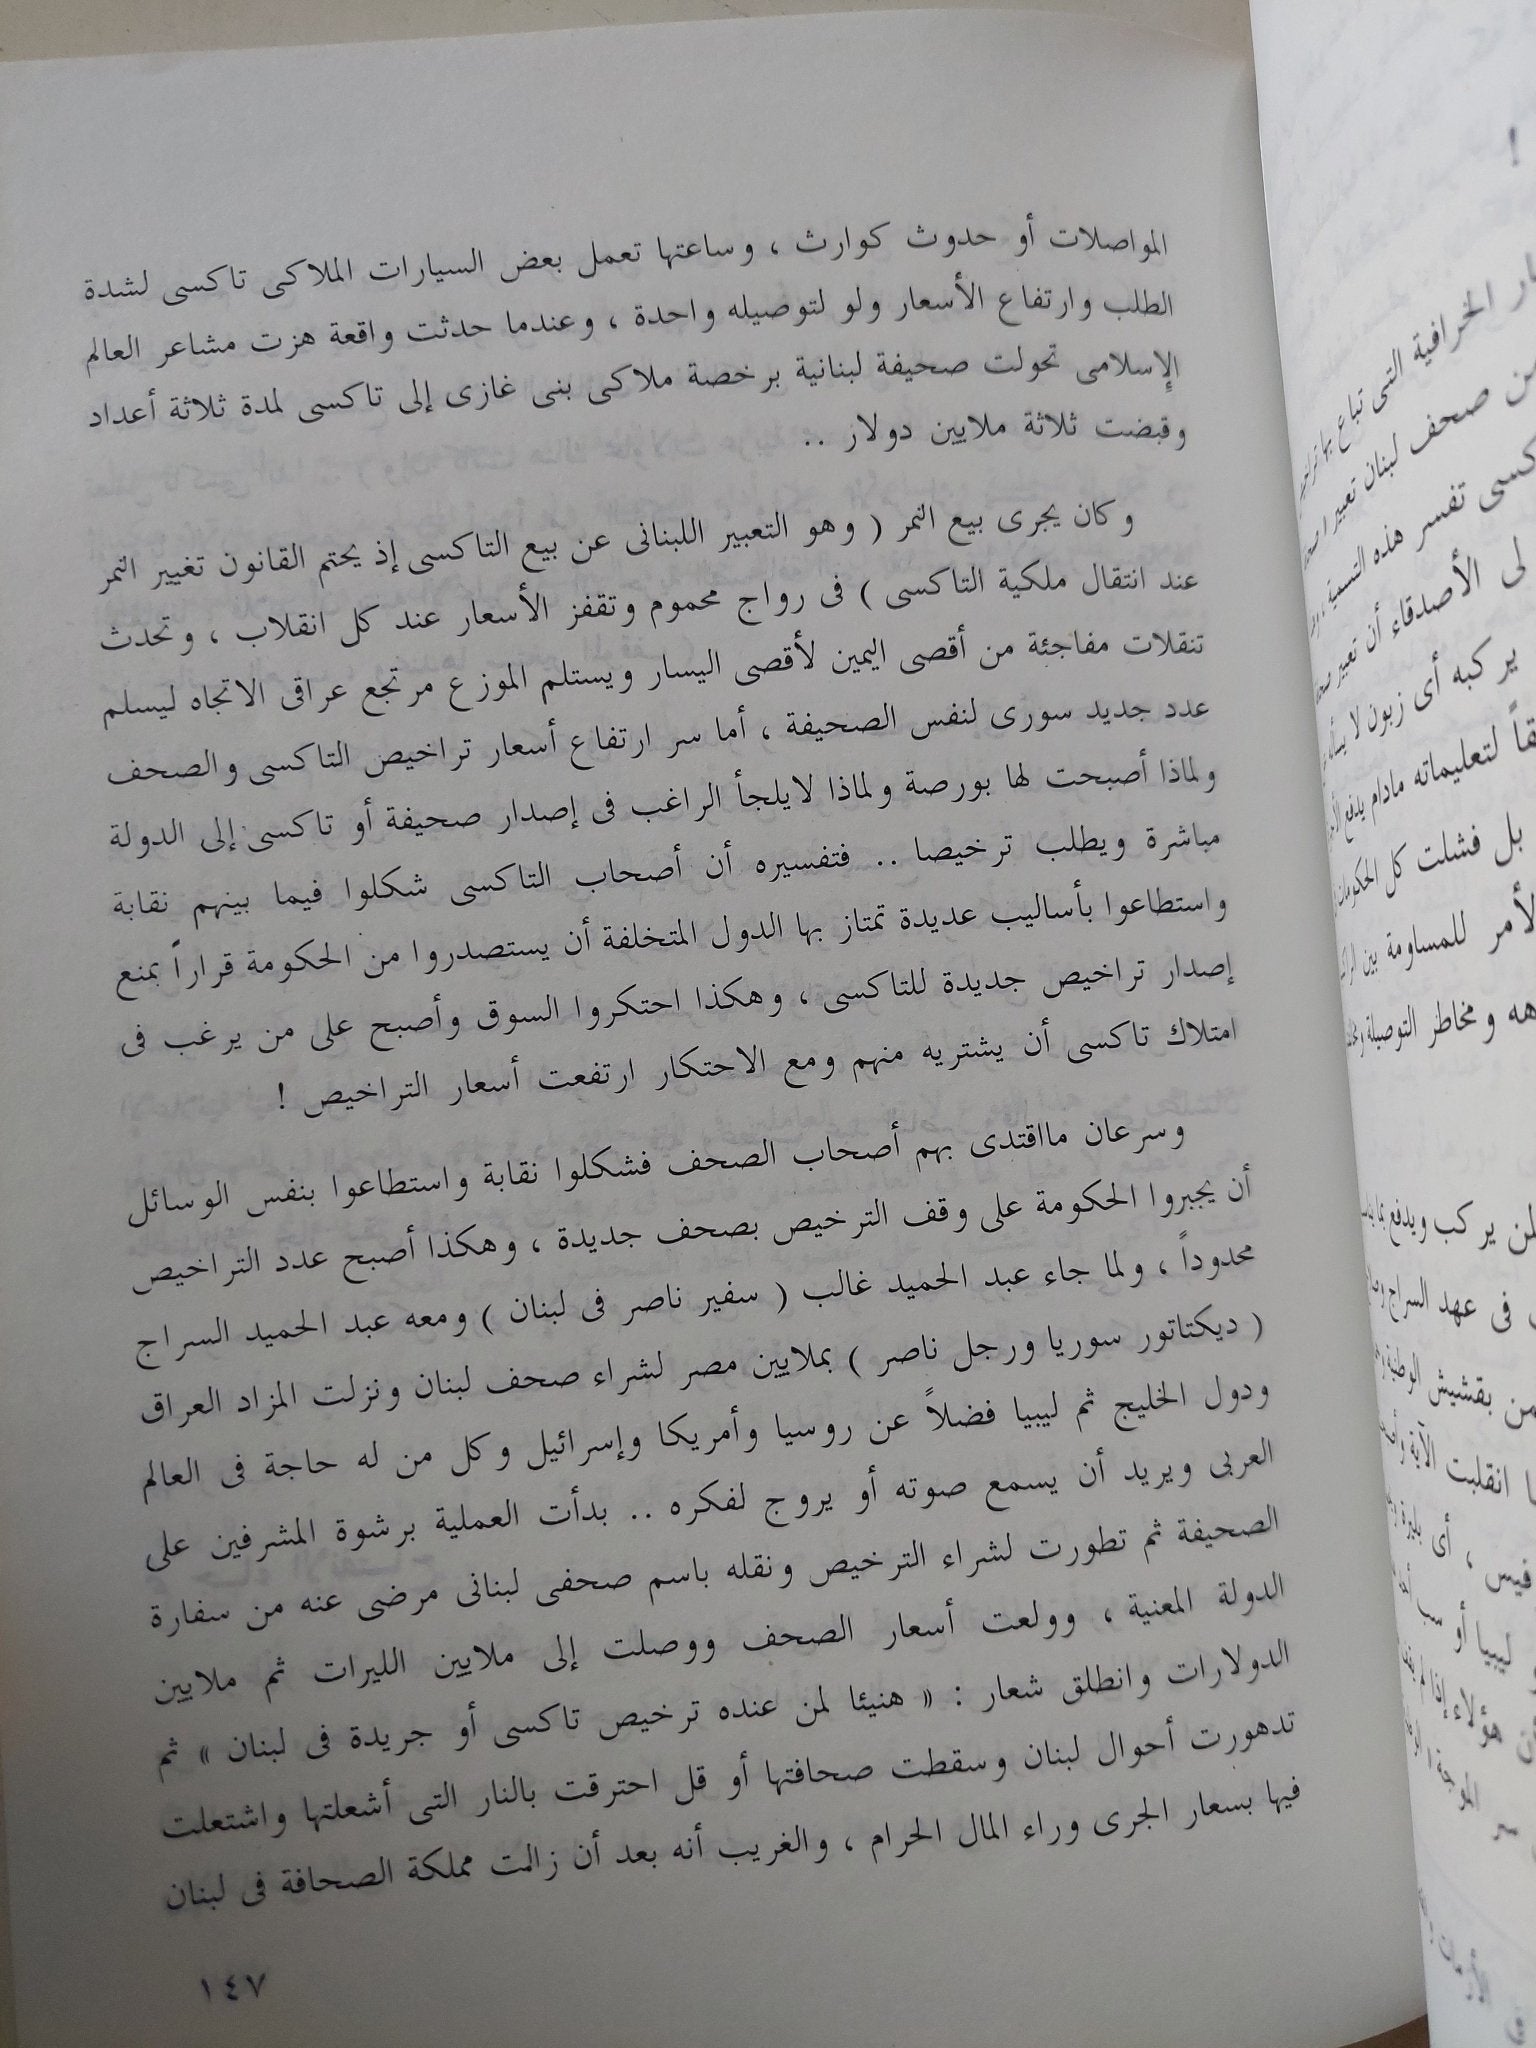 المواصلات أو حدوث كوارث ، وساعتها تعمل بعض السيارات الملاكى تاكسى لشدة
الطلب وارتفاع الأسعار ولو لتوصيله واحدة ، وعندما حدثت واقعة هزت مشاعر العالم
الإسلامى تحولت صحيفة لبنانية برخصة ملاكى بنى غازى إلى تاكسى لمدة ثلاثة أعداد
وقبضت ثلاثة ملايين دولار ..
وكان يجرى بيع النمر ( وهو التعبير اللبنانى عن بيع التاكسى إذ يحتم القانون تغيير النمر
عند انتقال ملكية التاكسى ) فى رواج محموم وتقفز الأسعار عند كل انقلاب ، وتحدث
تنقلات مفاجئة من أقصى اليمين لأقصى اليسار ويستلم الموزع مرتجع عراقى الاتجاه ليسلم
عدد جديد سورى لنفس الصحيفة ، أما سر ارتفاع أسعار تراخيص التاكسى والصحف
ولماذا أصبحت لها بورصة ولماذا لايلجأ الراغب فى إصدار صحيفة أو تاكسى إلى الدولة
مباشرة ويطلب ترخيصا .. فتفسيره أن أصحاب التاكسى شكلوا فيما بينهم نقابة
واستطاعوا بأساليب عديدة تمتاز بها الدول المتخلفة أن يستصدروا من الحكومة قراراً بمنع
إصدار تراخيص جديدة للتاكسى ، وهكذا احتكروا السوق وأصبح على من يرغب فى
امتلاك تاكسى أن يشتريه منهم ومع الاحتكار ارتفعت أسعار التراخيص !
وسرعان مااقتدى بهم أصحاب الصحف فشكلوا نقابة واستطاعوا بنفس الوسائل
أن يجبروا الحكومة على وقف الترخيص بصحف جديدة ، وهكذا أصبح عدد التراخيص
محدوداً ، ولما جاء عبد الحميد غالب ( سفير ناصر فى لبنان ) ومعه عبد الحميد السراج
( ديكتاتور سوريا ورجل ناصر ) بملايين مصر لشراء صحف لبنان ونزلت المزاد العراق
ودول الخليج ثم ليبيا فضلاً عن روسيا وأمريكا وإسرائيل وكل من له حاجة فى العالم
العربى ويريد أن يسمع صوته أو يروج لفكره .. بدأت العملية برشوة المشرفين على
الصحيفة ثم تطورت لشراء الترخيص ونقله باسم صحفى لبنانى مرضى عنه من سفارة
الدولة المعنية ، وولعت أسعار الصحف ووصلت إلى ملايين الليرات ثم ملايين
الدولارات وانطلق شعار : « هنيئا لمن عنده ترخيص تاكسى أو جريدة فى لبنان » ثم
تدهورت أحوال لبنان وسقطت صحافتها أو قل احترقت بالنار التى أشعلتها واشتعلت
فيها بسعار الجرى وراء المال الحرام ، والغريب أنه بعد أن زالت مملكة الصحافة فى لبنان
١٤٧
!
الخرافية التى تباع بها
صحف لبنان تعبير
تفسر هذه التسمية ،
الأصدقاء أن تعبير
يركبه أى زبون لا
لتعليماته مادام يدفع
بل فشلت كل
للمساومة بين
ومخاطر التوصيلة
يركب ويدفع
فى عهد السراج
بقشيش الوطنية
انقلبت الآية
، أى
ليبيا أو سب
هؤلاء إذا لم